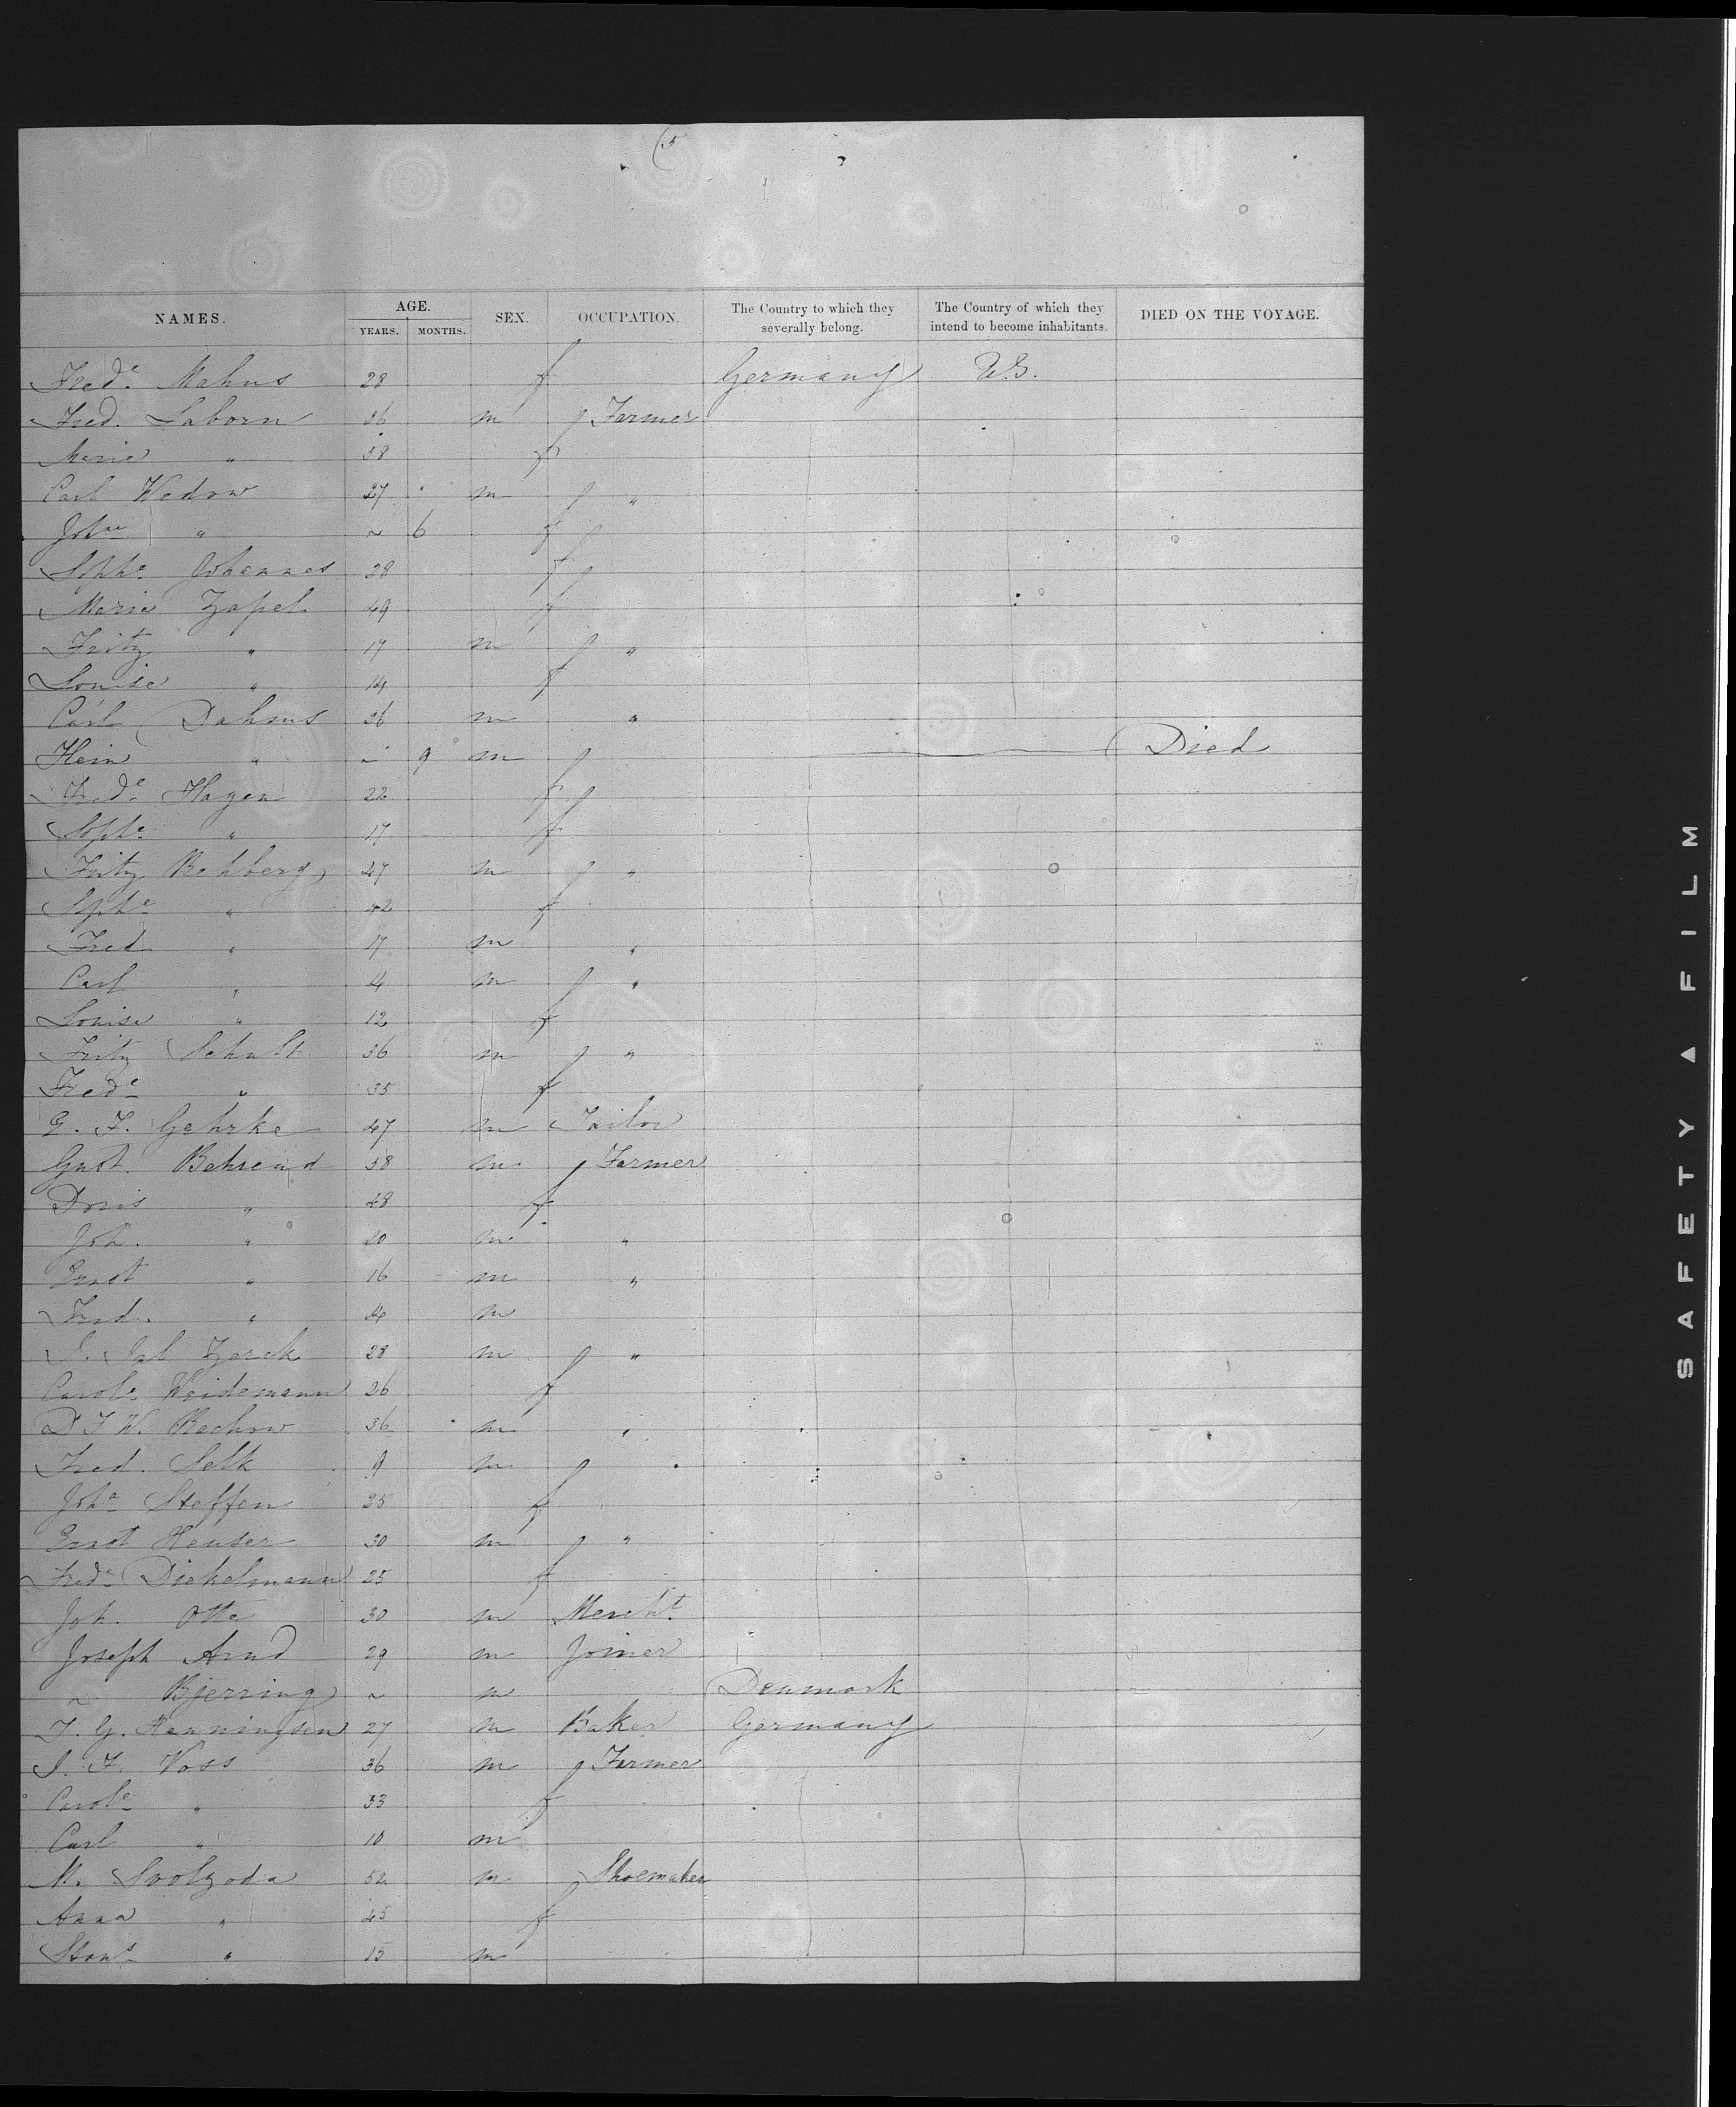 (5
NAMES. AGE. YEARS. MONTHS. SEX. OCCUPATION. The Country to which they severally belong. The Country of which they intend to become inhabitants. DIED ON THE VOYAGE.
Fredᵉ Mahns 28 f Germany U.S.
Fred. Saborn 36 m Farmer
Marie " 58 f
Carl Wedow 27 m "
Johⁿᵉ " ~ 6 f
Sophᵉ Johannes 28 f
Marie Zapel 49 f
Fritz " 17 m "
Louise " 14 f
Carl Dahms 26 m "
Hein " ~ 9 m Died
Fredᵉ Hagen 22 f
Sophᵉ " 17 f
Fritz Rehberg 47 m "
Sophᵉ " 42 f
Fred " 17 m "
Carl " 14 m "
Louise " 12 f
Fritz Schult 36 m "
Fredᵉ " 35 f
E. F. Gehrke 47 m Tailor
Gust. Behrend 58 m Farmer
Doris " 48 f
Joh. " 20 m "
Ernst " 16 m "
Fred. " 14 m
Zarck 28 m "
Carolᵉ Weidemann 26 f
D F W. Rachow 36 m "
Fred. Selk 9 m
Johᵃ Steffen 25 f
Ernst Heuser 30 m "
Fredᵉ Diekelmann 25 f
Joh. Otte 30 m Merchᵗ
Joseph Arnd 29 m Joiner
~ Bjerring ~ m Denmark
J. G. Henningsen 27 m Baker Germany
J. F. Voss 36 m Farmer
Carolᵉ " 33 f
Carl " 10 m
M. 52 m Shoemaker
Anna " 45 f
Stanˢ " 15 m
SAFETY ▲ FILM